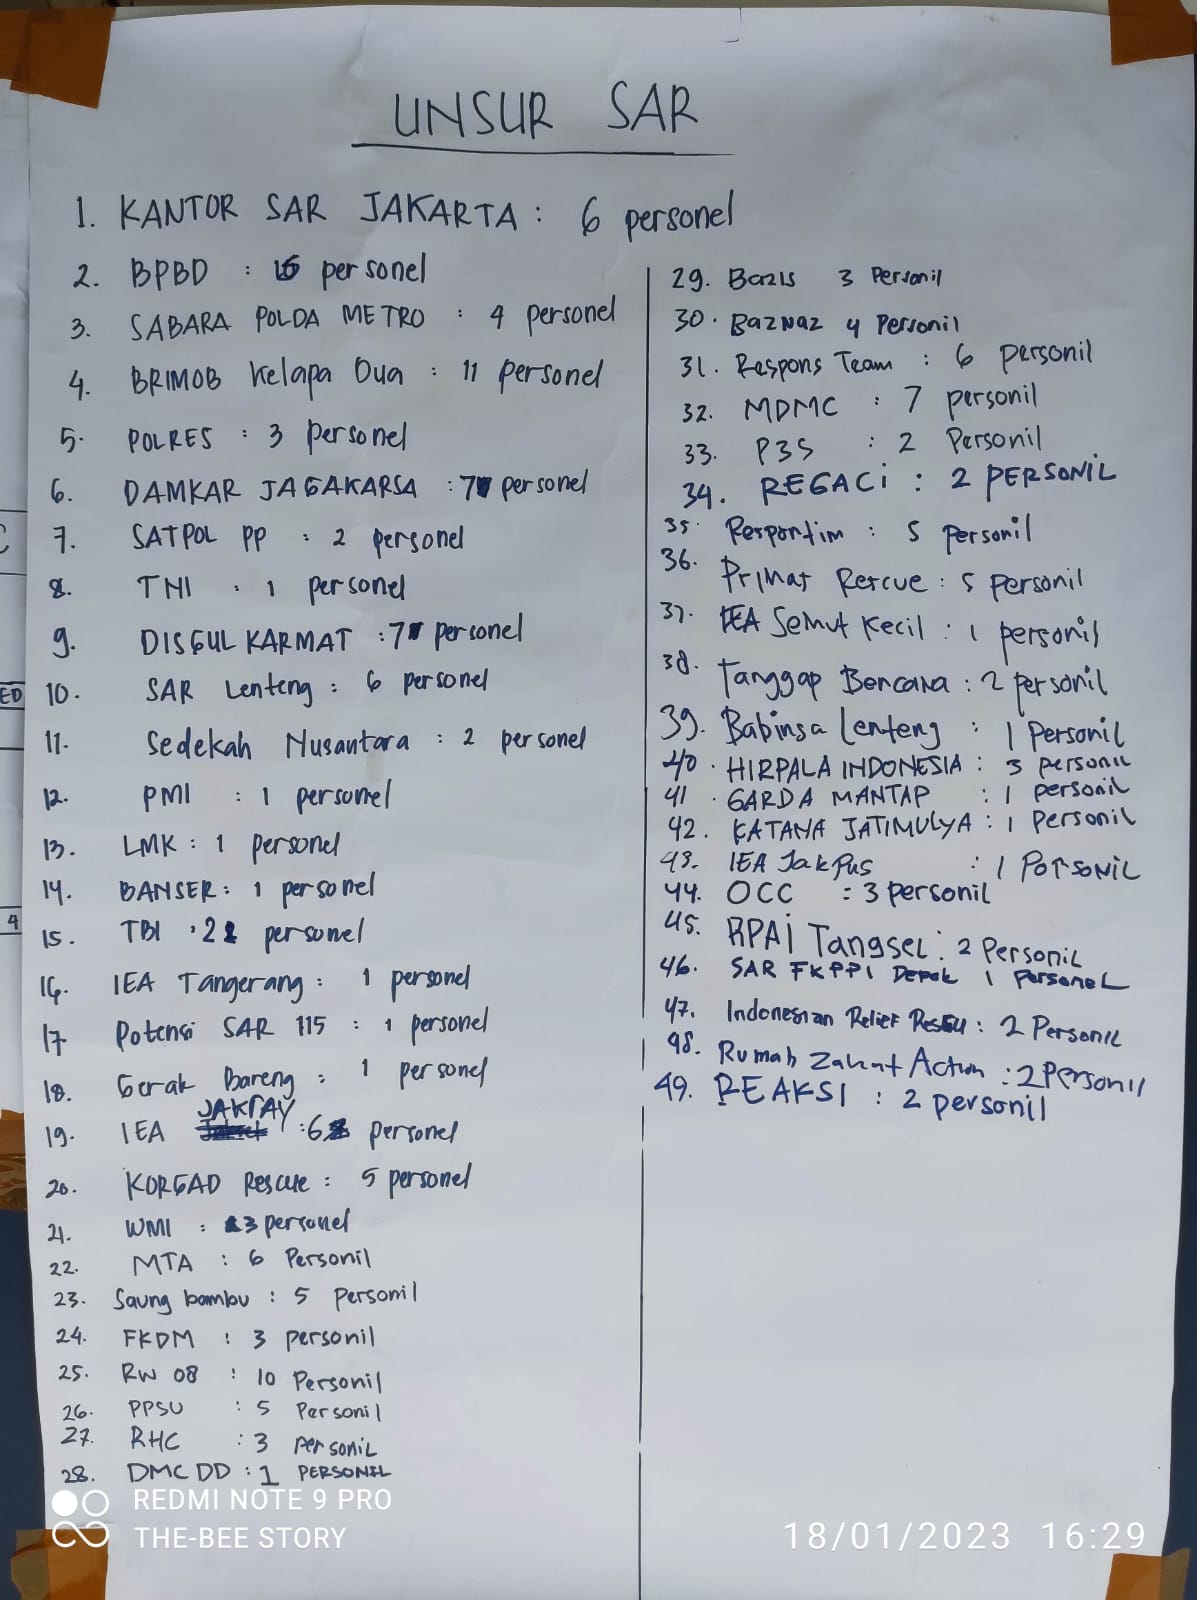 UNSUR SAR
1. KANTOR SAR JAKARTA : 6 personel
2. BPBD : personel
3. SABARA POLDA METRO : 4 personel
4. BRIMOB Kelapa Dua : 11 personel
5. POLRES : 3 personel
6. DAMKAR JAGAKARSA : 7 personel
7. SATPOL PP : 2 personel
8. TNI : 1 personel
9. DISGULKARMAT : 7 personel
10. SAR Lenteng : 6 personel
11. Sedekah Nusantara : 2 personel
12. PMI : 1 personel
13. LMK : 1 personel
14. BANSER : 1 personel
15. TBI : 2 personel
16. IEA Tangerang : 1 personel
17 Potensi SAR 115 : 1 personel
18. Gerak Bareng : 1 personel
19. IEA JAKRAY : 6 personel
20. KORGAD Rescue : 5 personel
21. WMI : 3 personel
22. MTA : 6 Personil
23. Saung bambu : 5 Personil
24. FKDM : 3 personil
25. RW 08 : 10 Personil
26. PPSU : 5 Personil
27. RHC : 3 personil
28. DMC DD : 1 PERSONIL
29. Bazis 3 Personil
30. BazNaz 4 Personil
31. Respons Team : 6 personil
32. MDMC : 7 personil
33. P3S : 2 Personil
34. REGACi : 2 PERSONIL
35. : 5 Personil
36. Primat Rescue : 5 personil
37. IEA Semut Kecil : 1 personil
38. Tanggap Bencana : 2 personil
39. Babinsa Lenteng : 1 Personil
40. HIRPALA INDONESIA : 3 personil
41. GARDA MANTAP : 1 personil
42. KATANA JATIMULYA : 1 Personil
43. IEA JakPus : 1 PorSoNiL
44. OCC : 3 personil
45. RPAi Tangsel : 2 Personil
46. SAR FKPPI Depok 1 Personel
47. Indonesian Relief : 2 Personil
48. Rumah Zakat Action : 2 Personil
49. REAKSI : 2 personil
ED
4
REDMI NOTE 9 PRO
THE-BEE STORY
18/01/2023 16:29